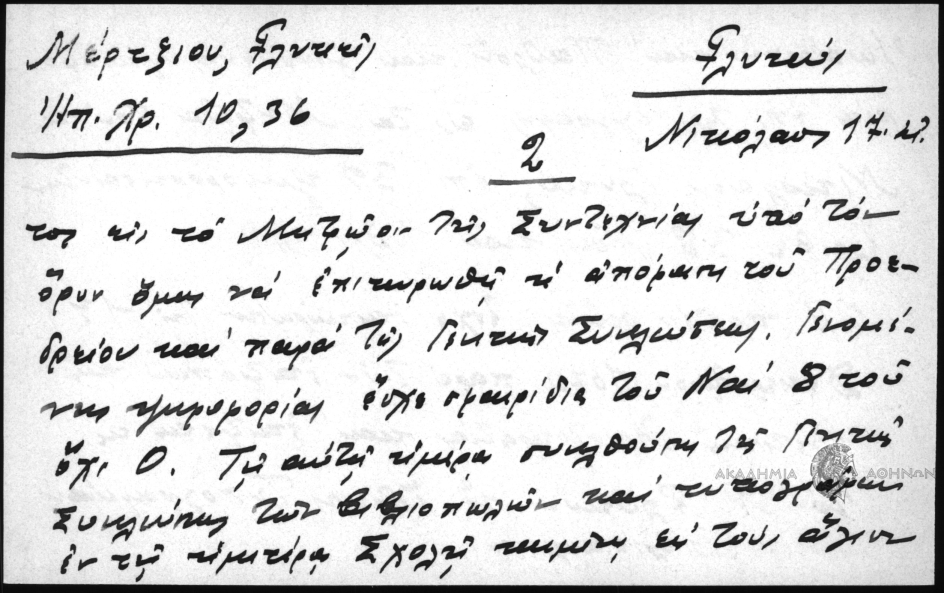 Μέρτζιου, Γλυκεῖς
Γλυκύς
Ἠπ. Χρ. 10, 36
Νικόλαος 17.
2
τος εἰς τὸ Μητρῶον τῆς Συντεχνίας ὑπὸ τὸν
ὅρον ὅμως νὰ ἐπικυρωθῇ ἡ ἀπόφασις τοῦ Προε-
δρείου καὶ παρὰ τῆς Γενικῆς Συνελεύσεως. Γενομέ-
νης ψηφοφορίας ἔσχε σφαιρίδια τοῦ Ναὶ 8 τοῦ
ὄχι 0. Τῇ αὐτῇ ἡμέρᾳ συνελθούσης τῆς Γενικῆς
ΑΚΑΔΗΜΙΑ ΑΘΗΝΩΝ
Συνελεύσεως τῶν βιβλιοπωλῶν καὶ τυπογράφων
ἐν τῇ ἡμετέρᾳ Σχολῇ κειμένῃ εἰς τοὺς ἅγιον